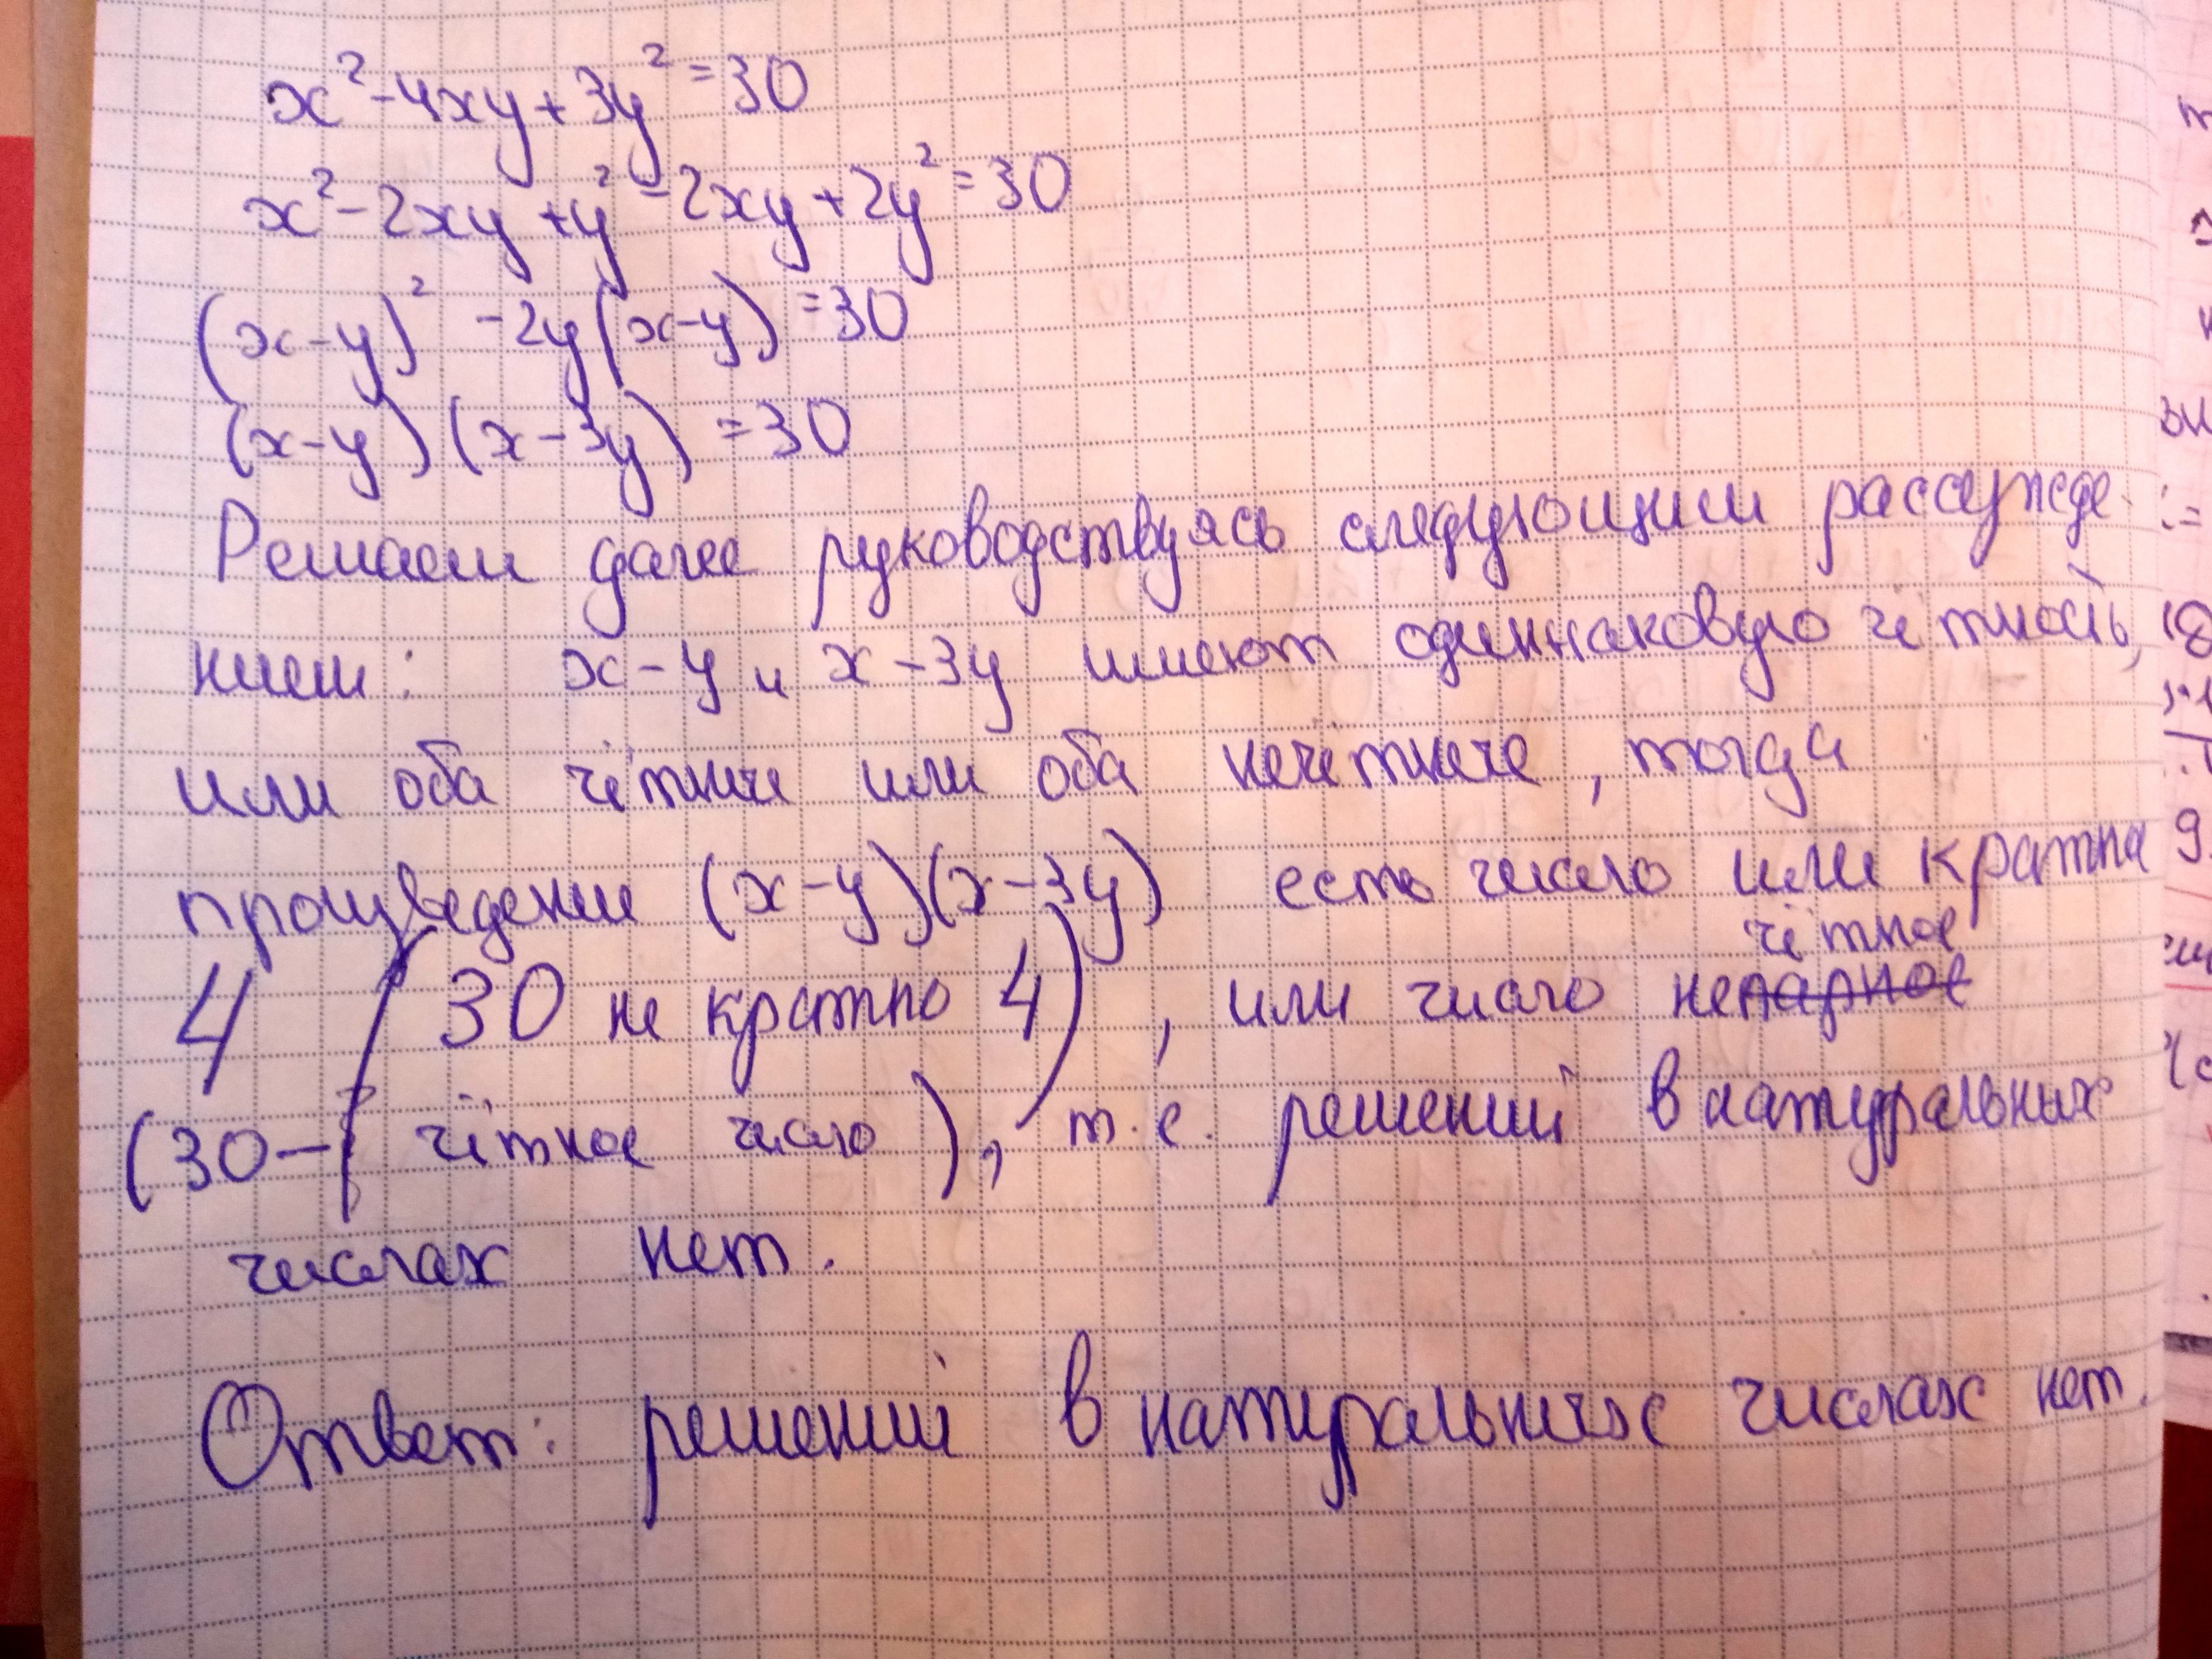 x²-4xy+3y²=30
x²-2xy+y²-2xy+2y²=30
(x-y)²-2y(x-y)=30
(x-y)(x-3y)=30
Решаем далее руководствуясь следующим рассужде-
нием: x-y и x-3y имеют одиннаковую чётность,
или оба чётные или оба нечётные, тогда
произведение (x-y)(x-3y) есть число или кратна
4 (30 не кратно 4), или число непарное чётное
(30- чётное число), т.е. решений в натуральных
числах нет.
Ответ: решений в натуральных числах нет.